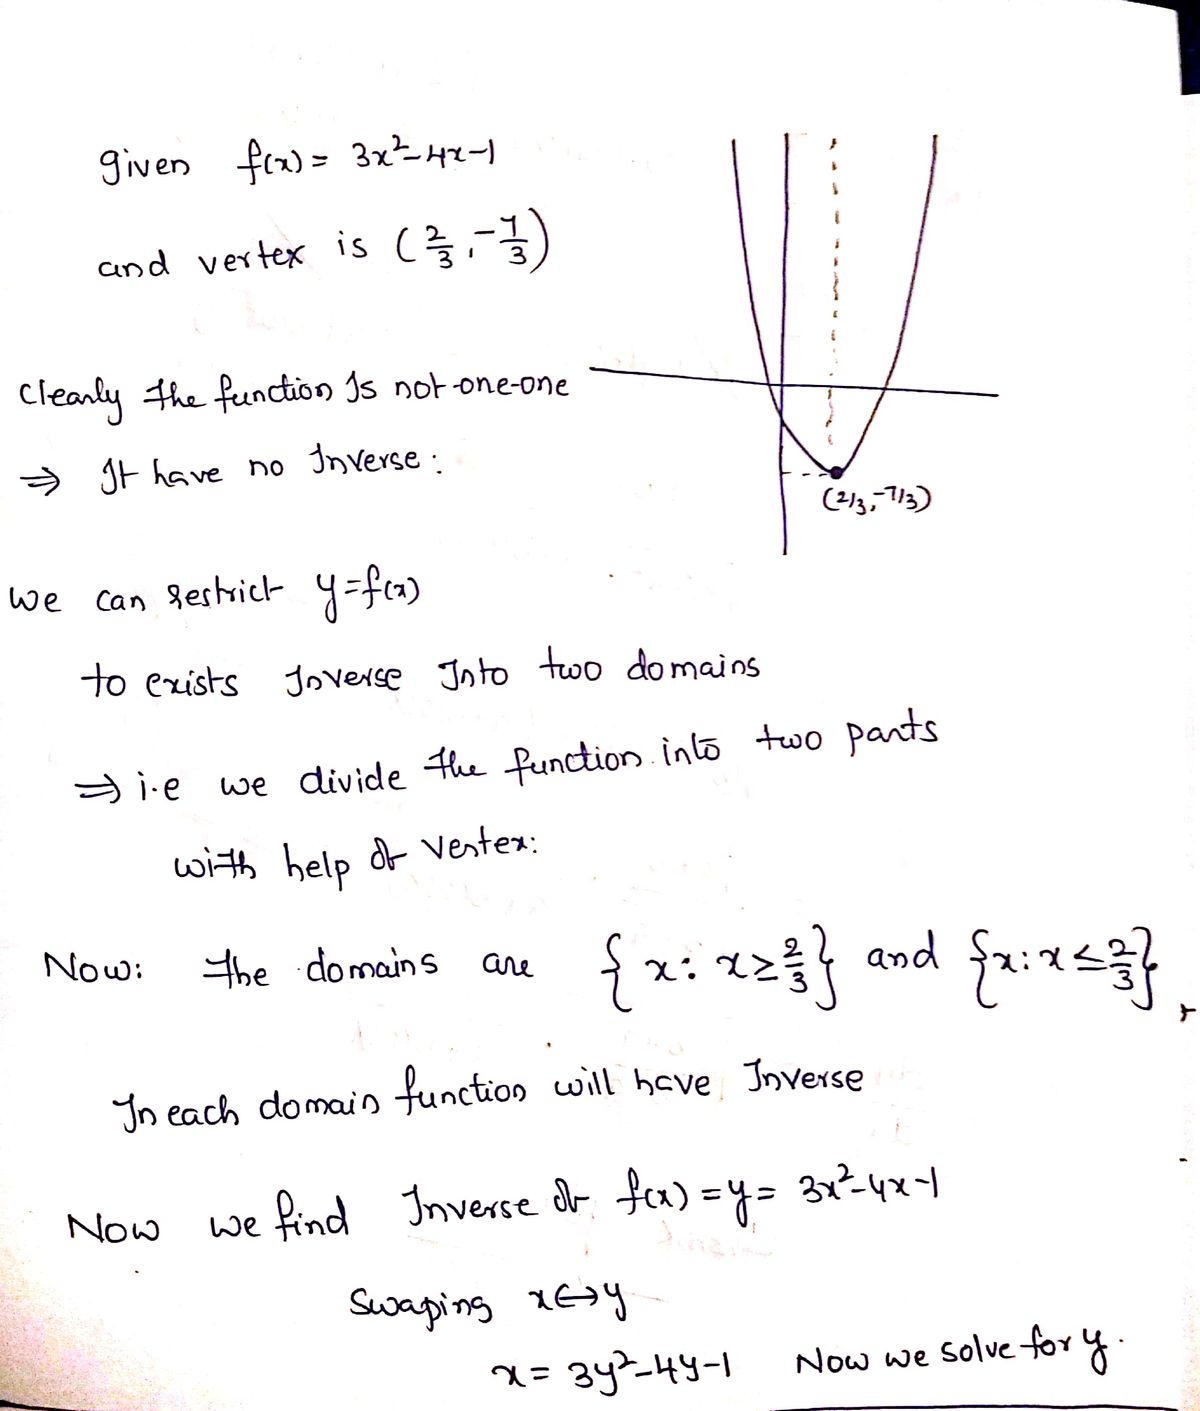 given f(x) = 3x²-4x-1
and vertex is (2/3, -7/3)
Clearly the function Is not-one-one
⇒ It have no Inverse:
(2/3, -7/3)
We can restrict y=f(x)
to exists Inverse Into two domains
⇒ i.e we divide the function into two parts
with help of vertex:
Now: the domains are {x: x≥2/3} and {x: x≤2/3},
In each domain function will have Inverse
Now we find Inverse of f(x) = y = 3x²-4x-1
Swaping x↔y
x = 3y²-4y-1 Now we solve for y.